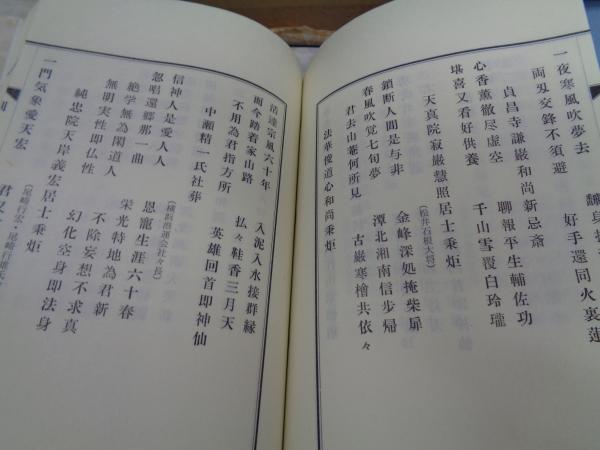 一夜寒風吹夢去
両刃交鋒不須避　好手還同火裏蓮
貞昌寺謙巌和尚新忌斎
心香薫徹尽虚空　聊報平生輔佐功
堪喜又看好供養　千山雪覆白玲瓏
天真院寂巌慧照居士秉炬（松井石根大将）
鎖断人間是与非　金峰深処掩柴扉
春風吹覚七旬夢　潭北湘南信歩帰
君去山菴何所見　古巌寒檜共依々
法華俊道心和尚秉炬
活達宗風六十年　入泥入水接群縁
而今踏着家山路　払々鞋香三月天
不用為君指方所　英雄回首即神仙
中瀬精一氏社葬（横浜港運会社々長）
信神人是愛人人　恩寵生涯六十春
忽唱還郷那一曲　栄光特地為君新
絶学無為閑道人　不除妄想不求真
無明実性即仏性　幻化空身即法身
純忠院天岸義宏居士秉炬（尾崎行宏・尾崎行雄
一門気象愛天宏